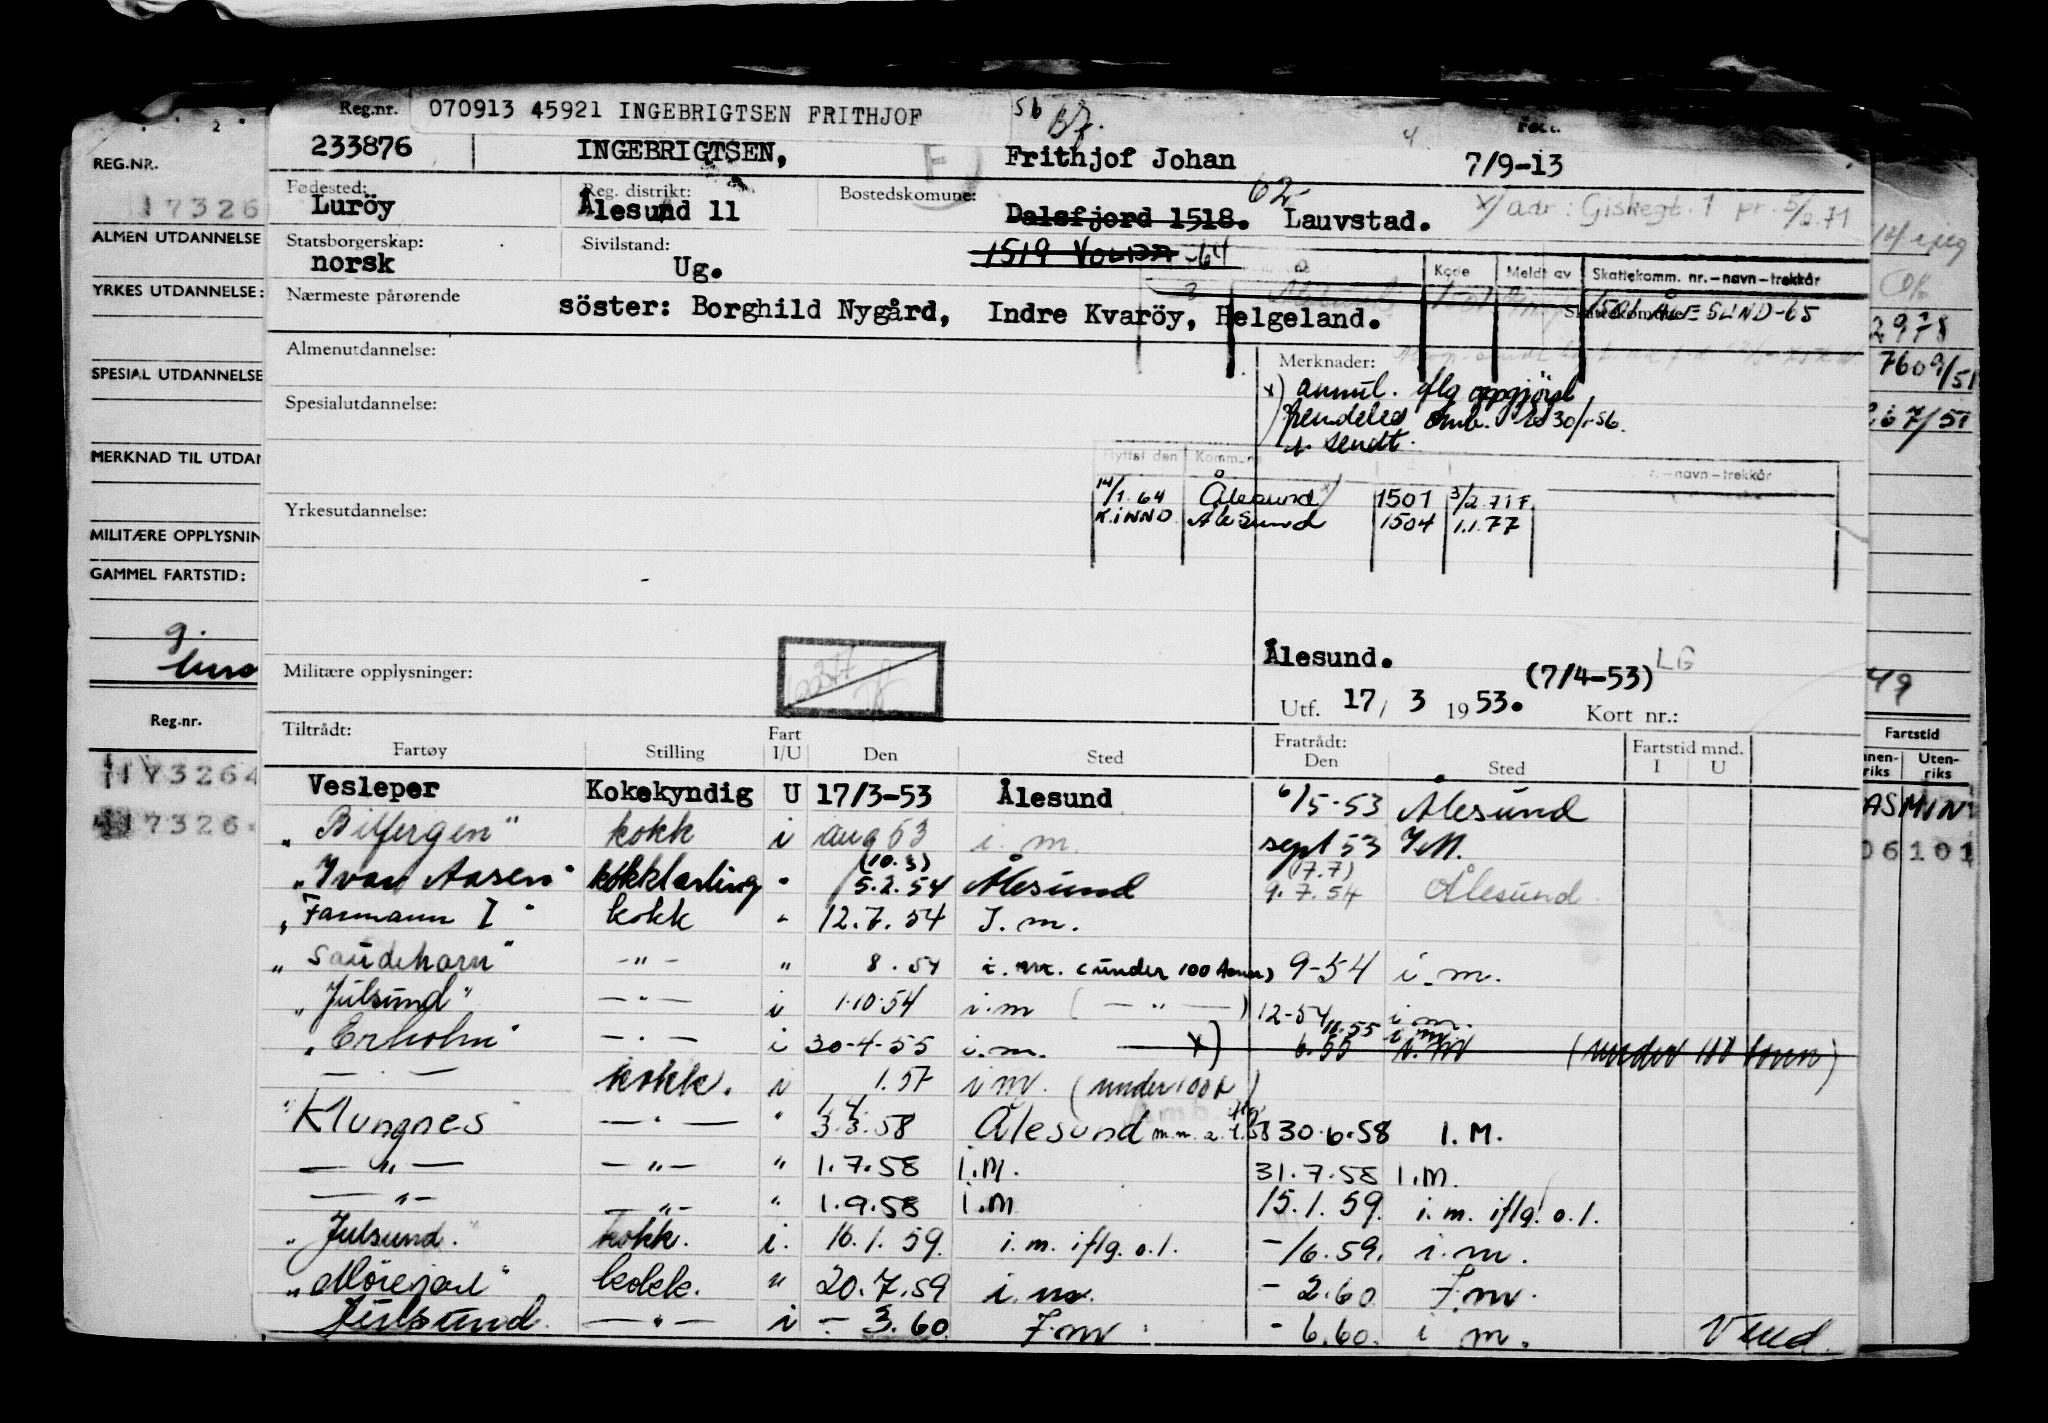 Reg.nr. 070913 45921 INGEBRIGTSEN FRITHJOF 56
233876 INGEBRIGTSEN, Frithjof Johan 7/9-13
Fødested: Luröy Reg. distrikt: Ålesund 11 Bostedskomune: Dalsfjord 1518. 62 Lauvstad. x/ adr: Giskegt. 1 pr. 5/2.71
Statsborgerskap: norsk Sivilstand: Ug. 1519 VOLDA -64
Kode Meldt av Skattekomm. nr.-navn-trekkår
Nærmeste pårørende söster: Borghild Nygård, Indre Kvaröy, Helgeland. 1501 ÅLESUND-65
Almenutdannelse: Merknader:
x) annul. iflg oppgjörsl
Spesialutdannelse:
sendt.
Flyttet den Kommune -navn-trekkår
14/1.64 Ålesund x/ 1501 3/2.71 F.
K.INND Ålesund 1504 1.1.77
Yrkesutdannelse:
Militære opplysninger:
Ålesund. LG
(7/4-53)
Utf. 17/ 3 1953. Kort nr.:
Tiltrådt: Fartøy Stilling Fart I/U Den Sted Fratrådt: Den Sted Fartstid mnd. I U
Vesleper Kokekyndig U 17/3-53 Ålesund 6/5-53 Ålesund
" kokk i aug 53 i. m. sept 53 I.M.
(10.3) (17.7)
"Ivar Aasen" kokklærling " 5.2.54 Ålesund 9.7.54 Ålesund
"Farmann I" kokk " 12.7.54 I.m.
"Saudehorn" -"- " 8.54 i. m. (under 100 tonn) 9-54 i.m.
"Julsund" -"- i 1.10.54 i.m (-"-) 12-54 i.m.
11.55 i m
"Erholm" -"- i 30-4-55 i.m. x) 6.55 i.m (under 100 tonn)
-"- kokk. i 1.57 i m. (under 100 t.)
1.4.
"Klungnes -"- " 3.3.58 Ålesund 30.6.58 I.M.
-"- -"- " 1.7.58 I.M. 31.7.58 I.M.
-"- -"- " 1.9.58 I.M 15.1.59. i.m. iflg. o.l.
"Julsund." kokk. i. 16.1.59. i.m. iflg. o.l. -/6.59. i.m.
"Mørejarl" kokk. " 20.7.59 i. m. -2.60 I.m.
Julsund. -"- i -3.60 I.m. -6.60. i m. Vend.
REG.NR.
17326
ALMEN UTDANNELSE
YRKES UTDANNELSE:
SPESIAL UTDANNELSE
MERKNAD TIL UTDAN
MILITÆRE OPPLYSNIN
GAMMEL FARTSTID:
Reg.nr.
173264
17326
OK
2978
49
Fartstid
nen-riks Uten-riks
ASMIN
06101